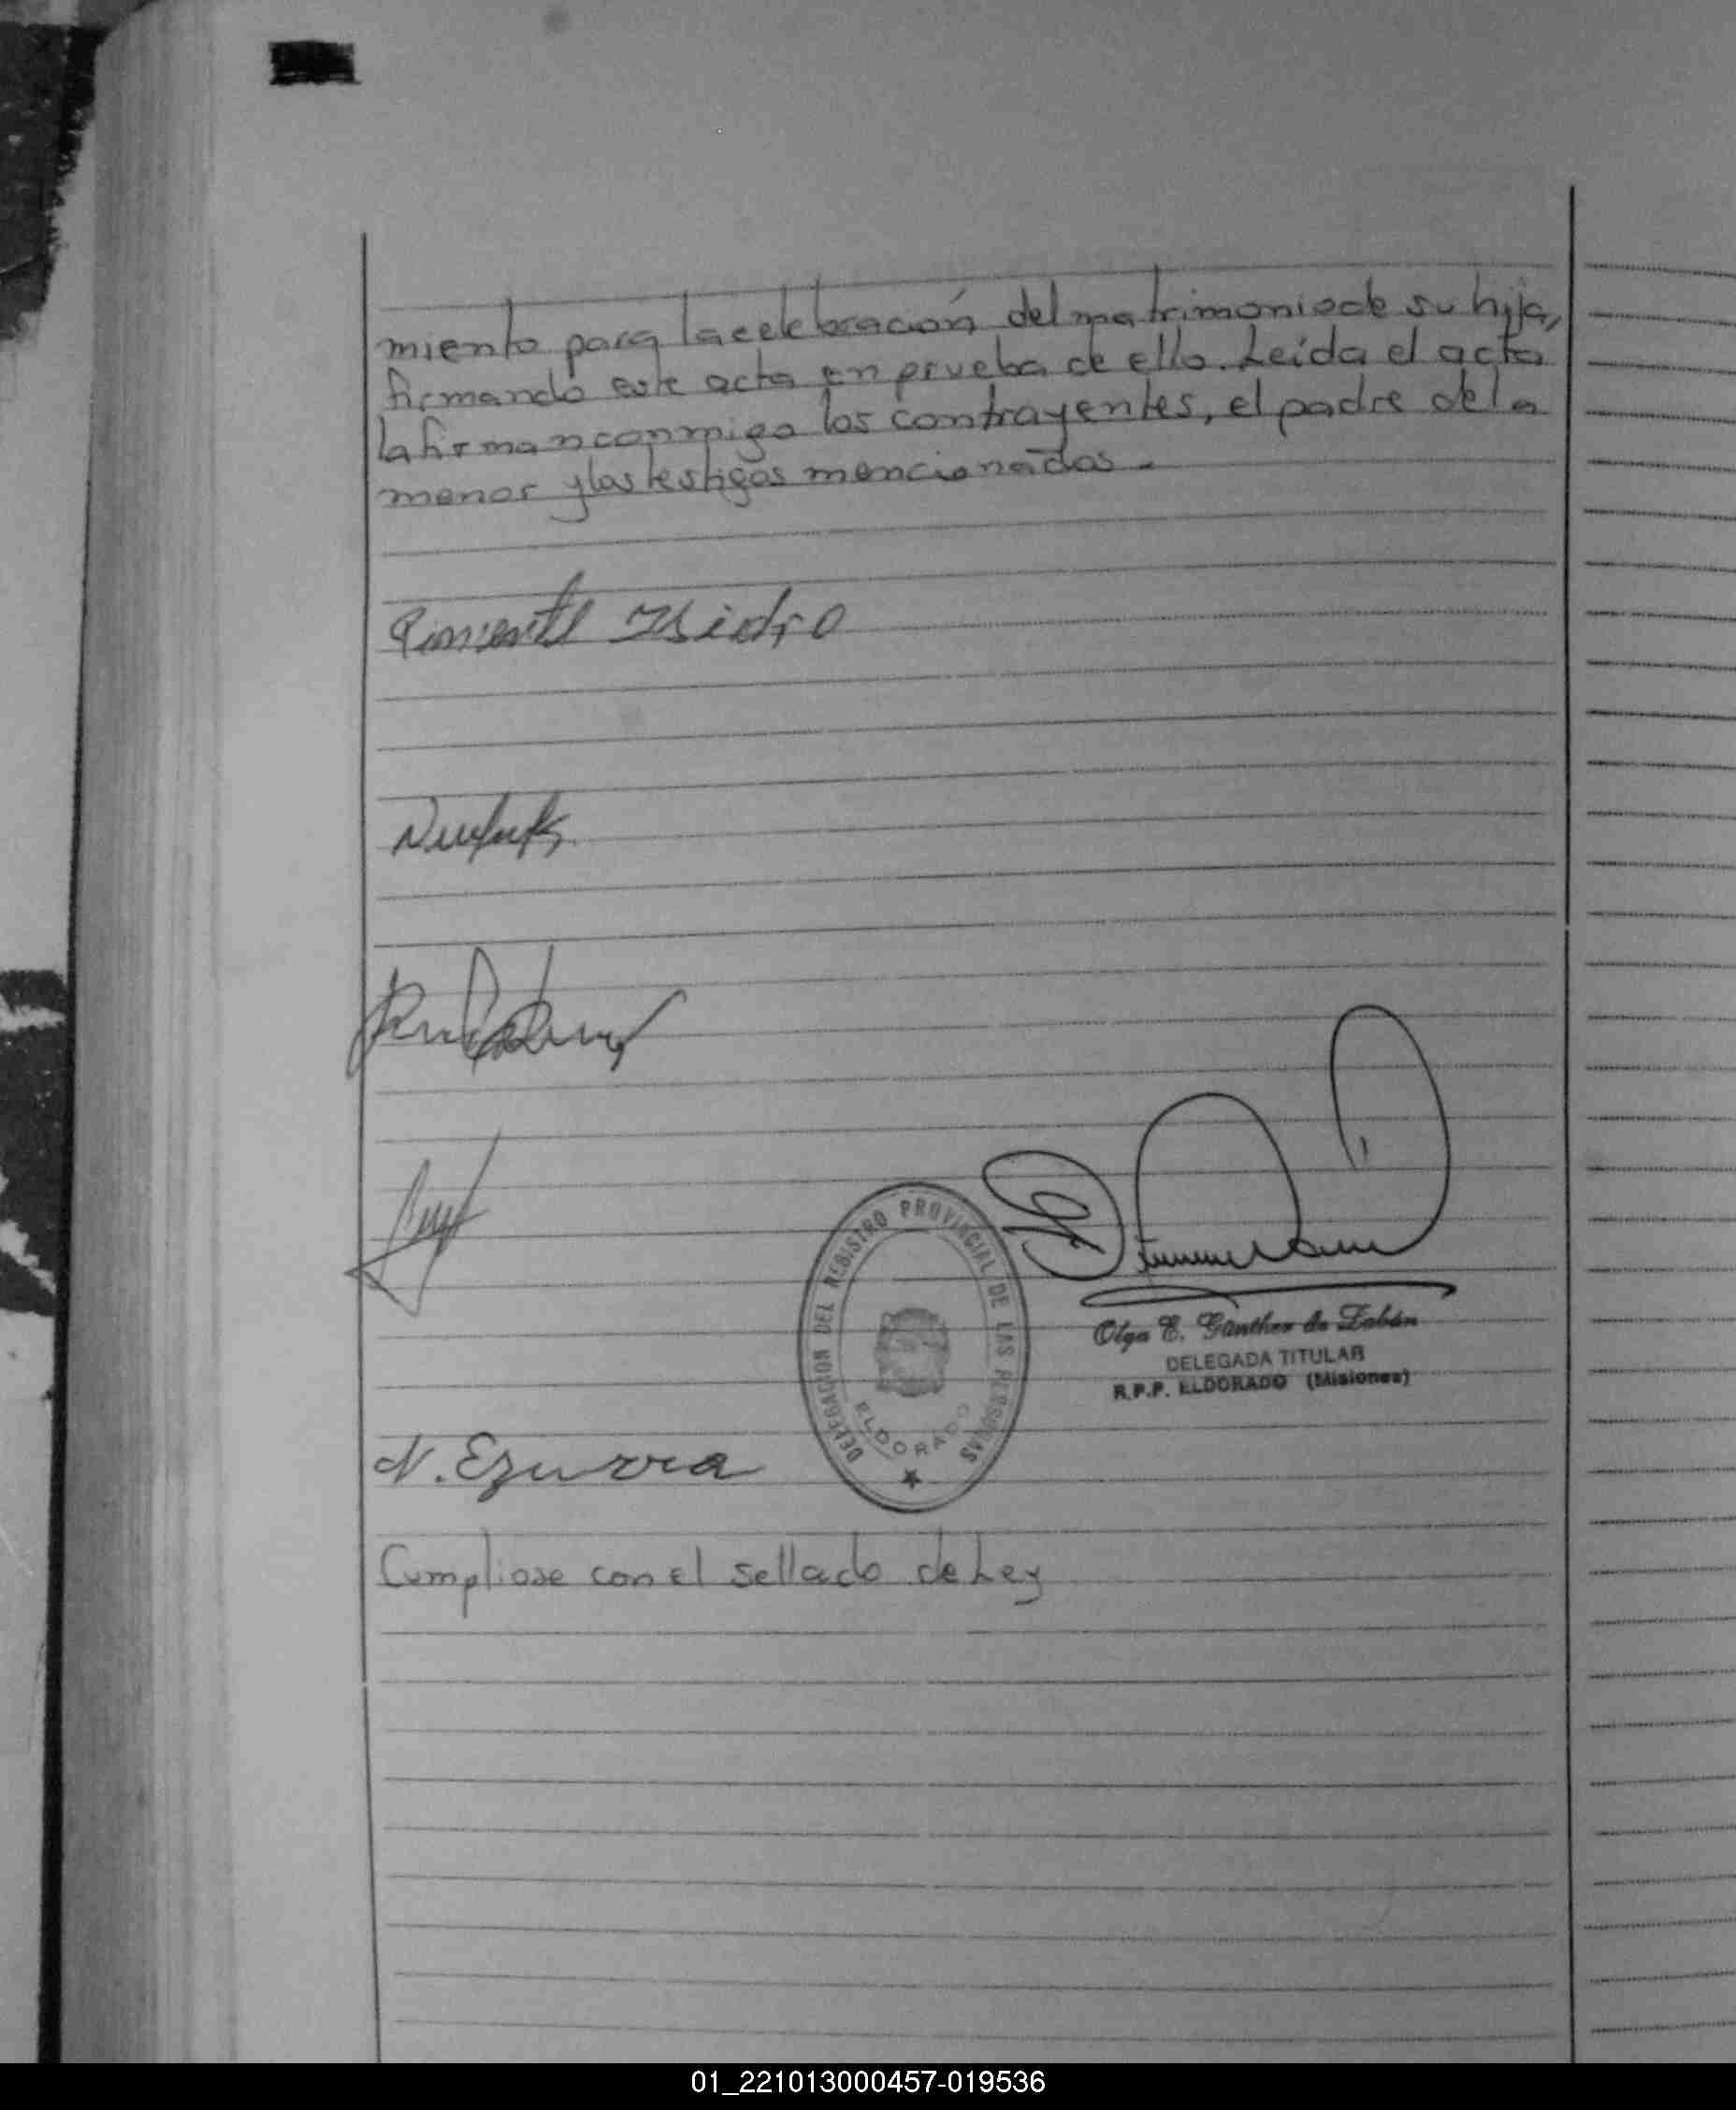 miento para la celebración del matrimonio de su hija,
firmando este acta en prueba de ello. Leída el acta
la firman conmigo los contrayentes, el padre de la
menor y los testigos mencionados.-
Pimentel Isidro
DELEGACION DEL REGISTRO PROVINCIAL DE LAS PERSONAS
ELDORADO
Olga E. Günther de Zabán
DELEGADA TITULAR
R.P.P. ELDORADO (Misiones)
N. Ezurra
Cumpliose con el sellado de Ley
01_221013000457-019536